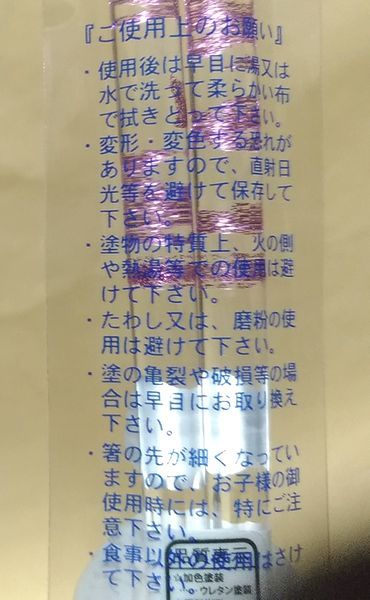 『ご使用上のお願い』
・使用後は早目に湯又は
水で洗って柔らかい布
で拭きとって下さい。
・変形・変色する恐れが
ありますので、直射日
光等を避けて保存して
下さい。
・塗物の特質上、火の側
や熱湯等での使用は避
けて下さい。
・たわし又は、磨粉の使
用は避けて下さい。
・塗の亀裂や破損等の場
合は早目にお取り換え
下さい。
・箸の先が細くなってい
ますので、お子様の御
使用時には、特にご注
意下さい。
・食事以外の使用はさけ
て下さい。
品質表示
☆加色塗装
ウレタン塗装